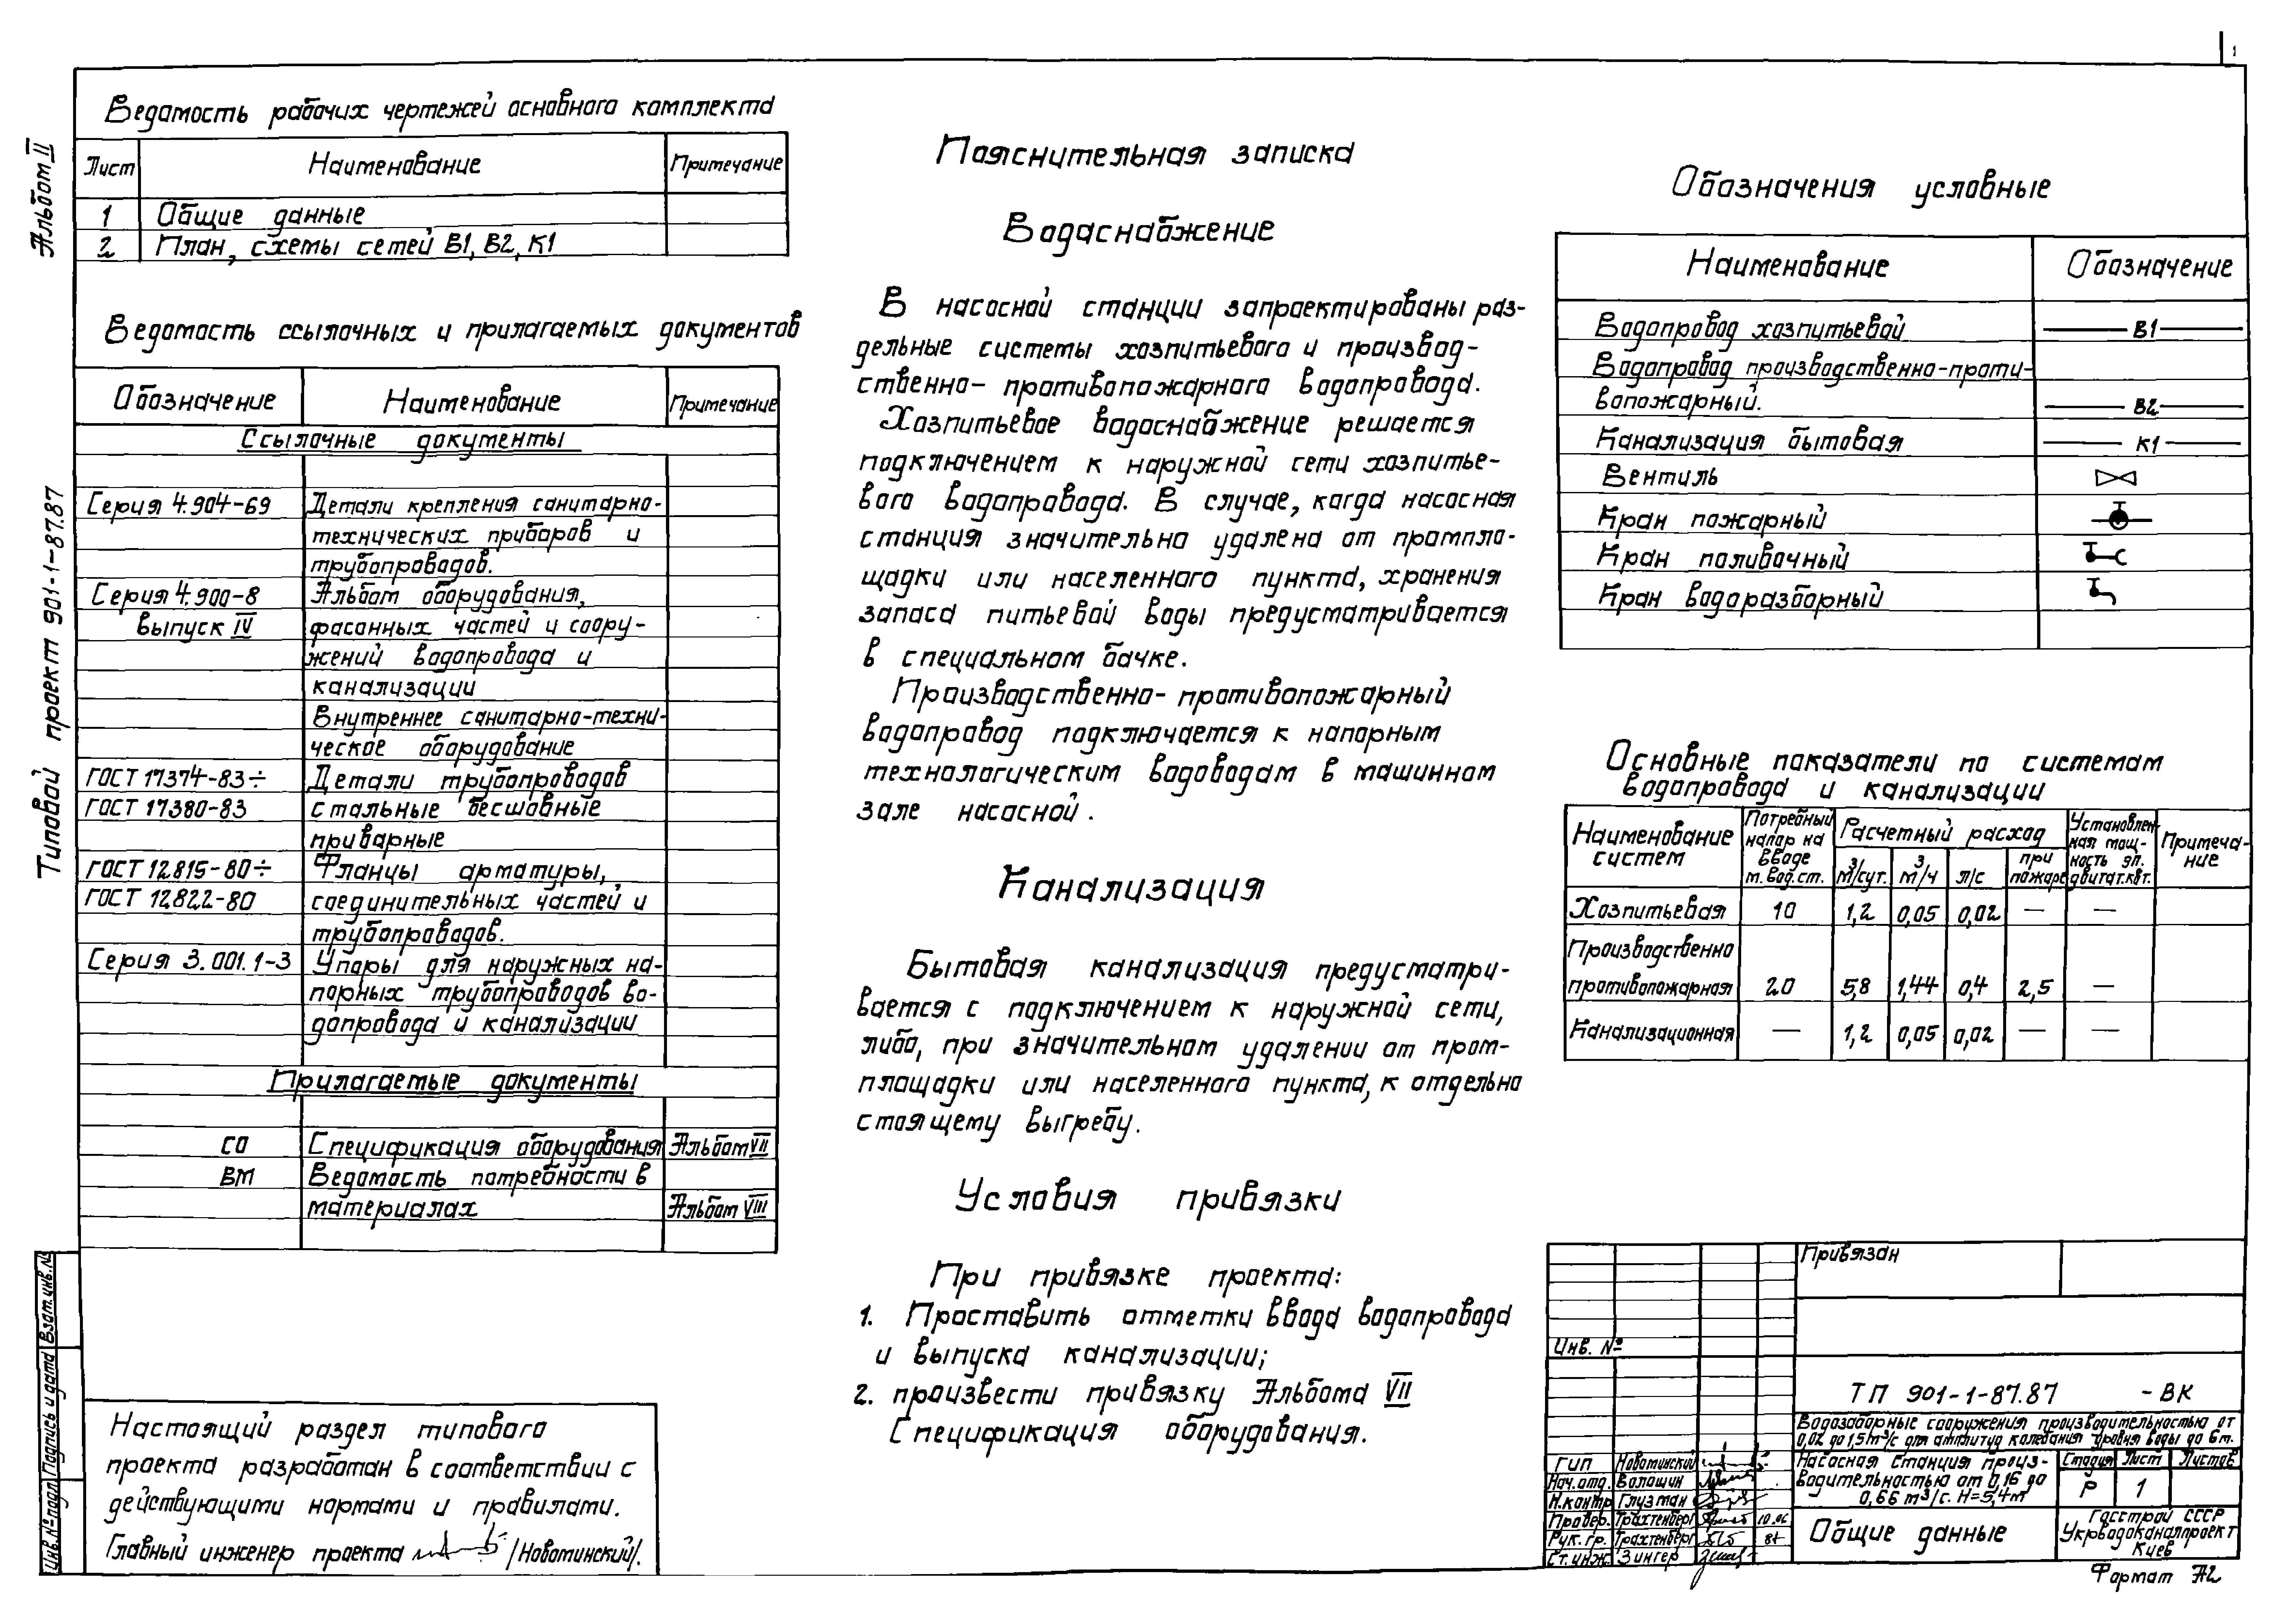 1
Альбом II
Типовой проект 901-1-87.87
Ведомость рабочих чертежей основного комплекта
Лист Наименование Примечание
1 Общие данные
2 План, схемы сетей В1, В2, К1
Ведомость ссылочных и прилагаемых документов
Обозначение Наименование Примечание
Ссылочные документы
Серия 4.904-69 Детали крепления санитарно-
технических приборов и
трубопроводов.
Серия 4.900-8 Альбом оборудования,
выпуск IV фасонных частей и соору-
жений водопровода и
канализации
Внутреннее санитарно-техни-
ческое оборудование
ГОСТ 17374-83÷ Детали трубопроводов
ГОСТ 17380-83 стальные бесшовные
приварные
ГОСТ 12815-80÷ Фланцы арматуры,
ГОСТ 12822-80 соединительных частей и
трубопроводов.
Серия 3.001.1-3 Упоры для наружных на-
порных трубопроводов во-
допровода и канализации
Прилагаемые документы
СО Спецификация оборудования Альбом VII
ВМ Ведомость потребности в
материалах Альбом VIII
Настоящий раздел типового
проекта разработан в соответствии с
действующими нормами и правилами.
Главный инженер проекта /Новоминский/.
Взам.инв.№
Подпись и дата
Инв.№ подл
Пояснительная записка
Водоснабжение
В насосной станции запроектированы раз-
дельные системы хозпитьевого и производ-
ственно- противопожарного водопровода.
Хозпитьевое водоснабжение решается
подключением к наружной сети хозпитье-
вого водопровода. В случае, когда насосная
станция значительно удалена от промпло-
щадки или населенного пункта, хранения
запаса питьевой воды предусматривается
в специальном бачке.
Производственно- противопожарный
водопровод подключается к напорным
технологическим водоводам в машинном
зале насосной.
Канализация
Бытовая канализация предусматри-
вается с подключением к наружной сети,
либо, при значительном удалении от пром-
площадки или населенного пункта, к отдельно
стоящему выгребу.
Условия привязки
При привязке проекта:
1. Проставить отметки ввода водопровода
и выпуска канализации;
2. произвести привязку Альбома VII
Спецификация оборудования.
Обозначения условные
Наименование Обозначение
Водопровод хозпитьевой В1
Водопровод производственно-проти-
вопожарный. В2
Канализация бытовая К1
Вентиль
Кран пожарный
Кран поливочный
Кран водоразборный
Основные показатели по системам
водопровода и канализации
Наименование систем Потребный напор на вводе м.вод.ст. Расчетный расход Установлен- ная мощ- ность эл. двигат.квт. Примеча- ние
м³/сут. м³/ч л/с при пожаре
Хозпитьевая 10 1,2 0,05 0,02 — —
Производственно
противопожарная 20 5,8 1,44 0,4 2,5 —
Канализационная — 1,2 0,05 0,02 — —
Привязан
Инв. №
ТП 901-1-87.87 -ВК
Водозаборные сооружения производительностью от
0,02 до 1,5 м³/с для амплитуд колебания уровня воды до 6 м.
ГИП Новоминский
Нач.отд. Волошин
Н.контр Глузман
Провер. Трахтенберг 10.86
Рук.гр. Трахтенберг 87
Ст.инж. Зингер
Насосная станция произ-
водительностью от 0,16 до
0,66 м³/с. Н=5,4м
Стадия Лист Листов
Р 1
Общие данные
Госстрой СССР
Укрводоканалпроект
Киев
Формат А2